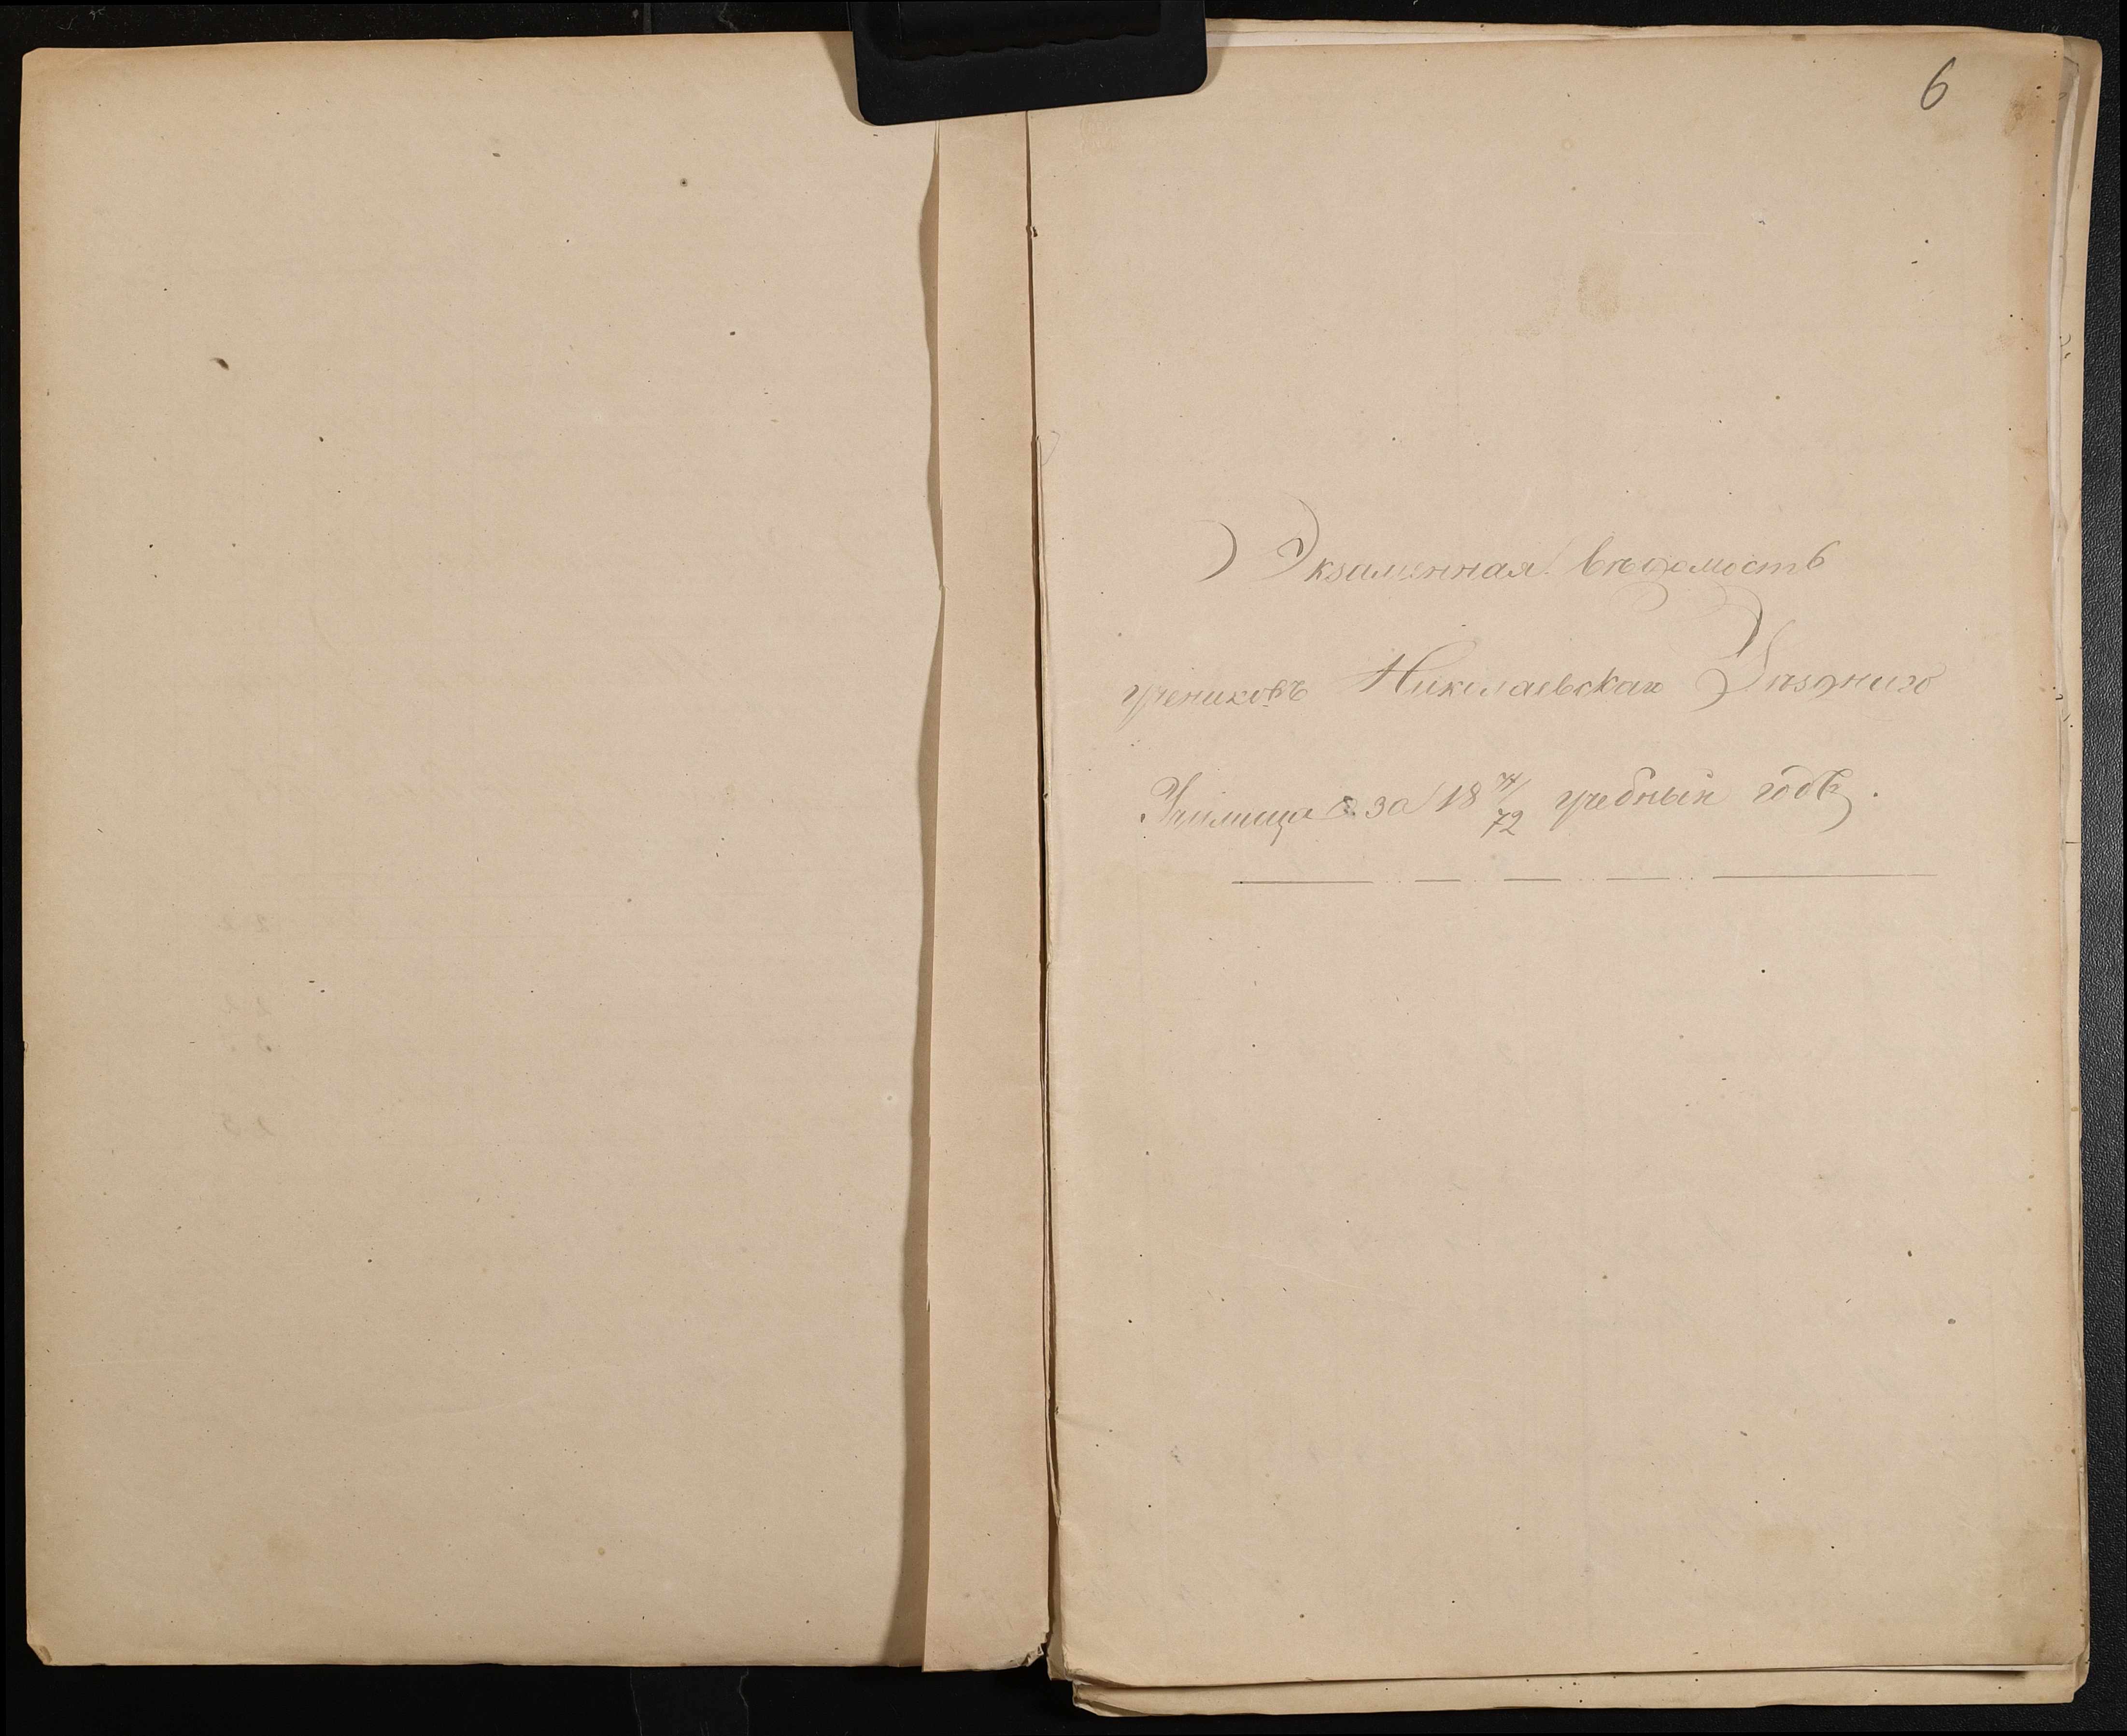 6
Экзаменная вѣдомость
учениковъ Николаевскаго Уѣзднаго
Училища за 18 71/72 учебный годъ.